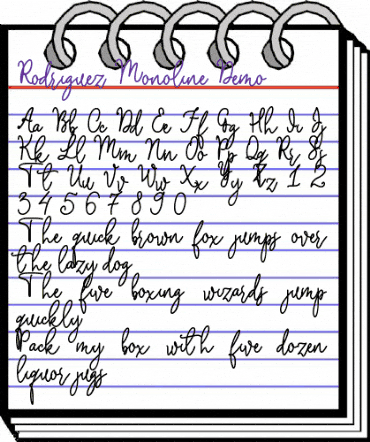 Rodriguez Monoline Demo
Aa Bb Cc Dd Ee Ff Gg Hh Ii Jj
Kk Ll Mm Nn Oo Pp Qq Rr Ss
Tt Uu Vv Ww Xx Yy Zz 1 2
3 4 5 6 7 8 9 0
The quick brown fox jumps over
the lazy dog
The five boxing wizards jump
quickly
Pack my box with five dozen
liquor jugs